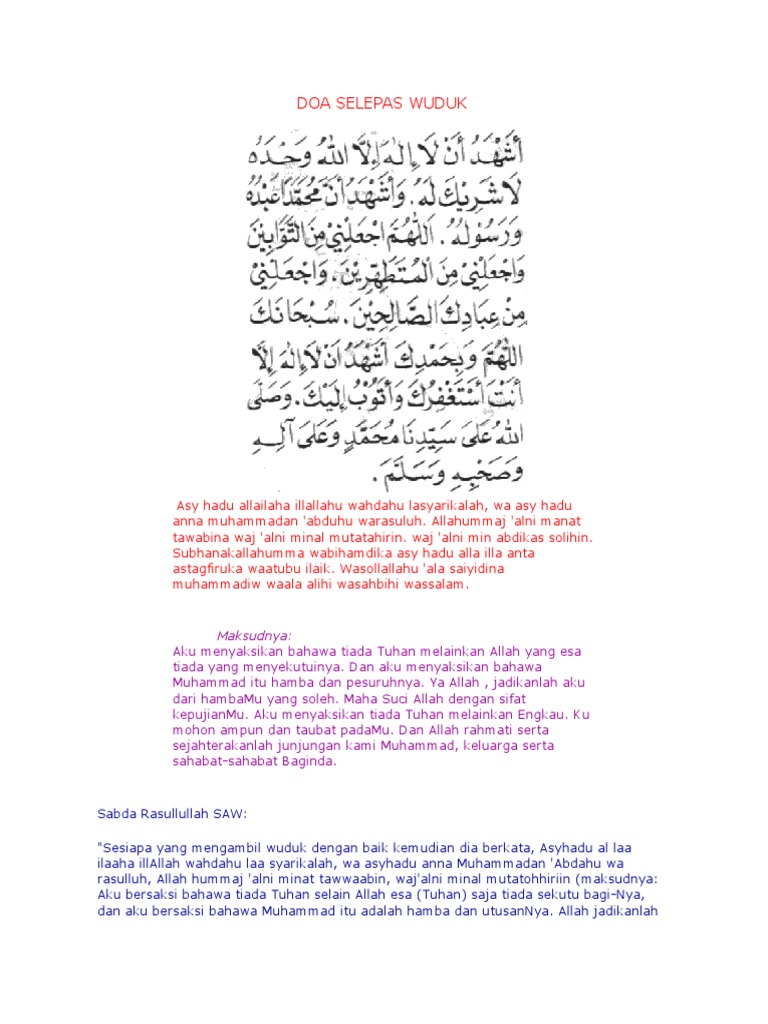 DOA SELEPAS WUDUK
أَشْهَدُ أَنْ لَا إِلٰهَ إِلَّا اللهُ وَحْدَهُ
لَا شَرِيْكَ لَهُ. وَأَشْهَدُ أَنَّ مُحَمَّدًا عَبْدُهُ
وَرَسُوْلُهُ. اَللّٰهُمَّ اجْعَلْنِيْ مِنَ التَّوَّابِيْنَ
وَاجْعَلْنِيْ مِنَ الْمُتَطَهِّرِيْنَ، وَاجْعَلْنِيْ
مِنْ عِبَادِكَ الصَّالِحِيْنَ. سُبْحَانَكَ
اللّٰهُمَّ وَبِحَمْدِكَ أَشْهَدُ أَنْ لَا إِلٰهَ إِلَّا
أَنْتَ أَسْتَغْفِرُكَ وَأَتُوْبُ إِلَيْكَ. وَصَلَّى
اللهُ عَلَى سَيِّدِنَا مُحَمَّدٍ وَعَلَى آلِهِ
وَصَحْبِهِ وَسَلَّمَ.
Asy hadu allailaha illallahu wahdahu lasyarikalah, wa asy hadu
anna muhammadan 'abduhu warasuluh. Allahummaj 'alni manat
tawabina waj 'alni minal mutatahirin. waj 'alni min abdikas solihin.
Subhanakallahumma wabihamdika asy hadu alla illa anta
astagfiruka waatubu ilaik. Wasollallahu 'ala saiyidina
muhammadiw waala alihi wasahbihi wassalam.
Maksudnya:
Aku menyaksikan bahawa tiada Tuhan melainkan Allah yang esa
tiada yang menyekutuinya. Dan aku menyaksikan bahawa
Muhammad itu hamba dan pesuruhnya. Ya Allah , jadikanlah aku
dari hambaMu yang soleh. Maha Suci Allah dengan sifat
kepujianMu. Aku menyaksikan tiada Tuhan melainkan Engkau. Ku
mohon ampun dan taubat padaMu. Dan Allah rahmati serta
sejahterakanlah junjungan kami Muhammad, keluarga serta
sahabat-sahabat Baginda.
Sabda Rasullullah SAW:
"Sesiapa yang mengambil wuduk dengan baik kemudian dia berkata, Asyhadu al laa
ilaaha illAllah wahdahu laa syarikalah, wa asyhadu anna Muhammadan 'Abdahu wa
rasulluh, Allah hummaj 'alni minat tawwaabin, waj'alni minal mutatohhiriin (maksudnya:
Aku bersaksi bahawa tiada Tuhan selain Allah esa (Tuhan) saja tiada sekutu bagi-Nya,
dan aku bersaksi bahawa Muhammad itu adalah hamba dan utusanNya. Allah jadikanlah